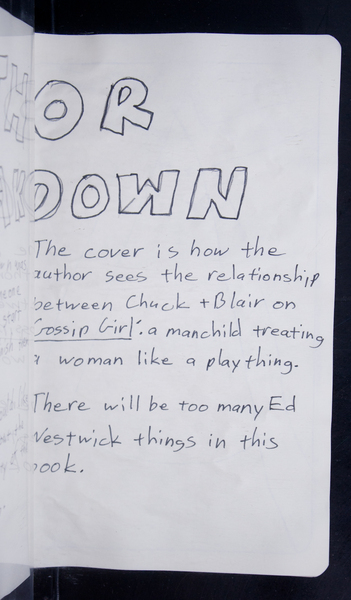 THOR
AKDOWN
The cover is how the
author sees the relationship
between Chuck + Blair on
Gossip Girl: a manchild treating
a woman like a play thing.
There will be too many Ed
Westwick things in this
book.